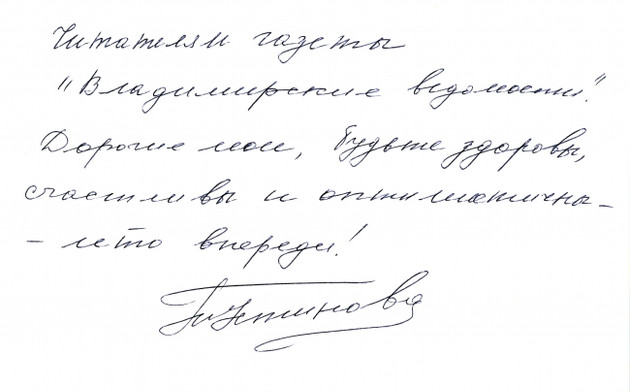 Читателям газеты
"Владимирские ведомости".
Дорогие мои, будьте здоровы,
счастливы и оптимистичны –
– лето впереди!